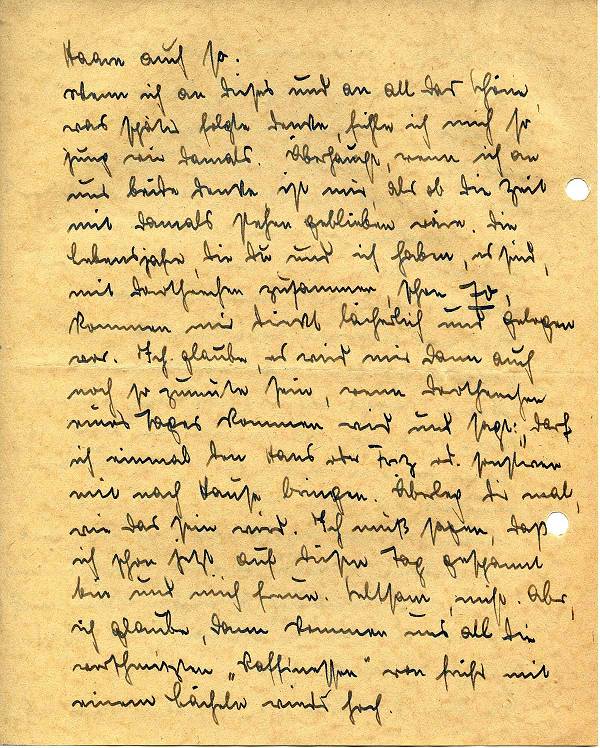 Haare auf so.
Wenn ich an dieses und an all das Schöne,
was später folgte denke, fühle ich mich so
jung wie damals. Überhaupt, wenn ich an
uns beide denke, ist mir, als ob die Zeit
mit damals stehen geblieben wäre. Die
Lebensjahre, die du und ich haben, es sind,
mit zusammen, schon 70,
kommen mir direkt lächerlich und gelogen
vor. Ich glaube, es wird mir dann auch
noch so zumute sein, wenn
eines Tages kommen wird und sagt: „darf
ich einmal den Hans oder Fritz od. sonstwen
mit nach Hause bringen. Überleg dir mal,
wie das sein wird. Ich muß sagen, daß
ich schon jetzt auf diesen Tag gespannt
bin und mich freue. Seltsam, was. Aber,
ich glaube, dann kommen uns all die
verschmitzten „Raffinessen" von früher mit
einem Lächeln wieder hoch.